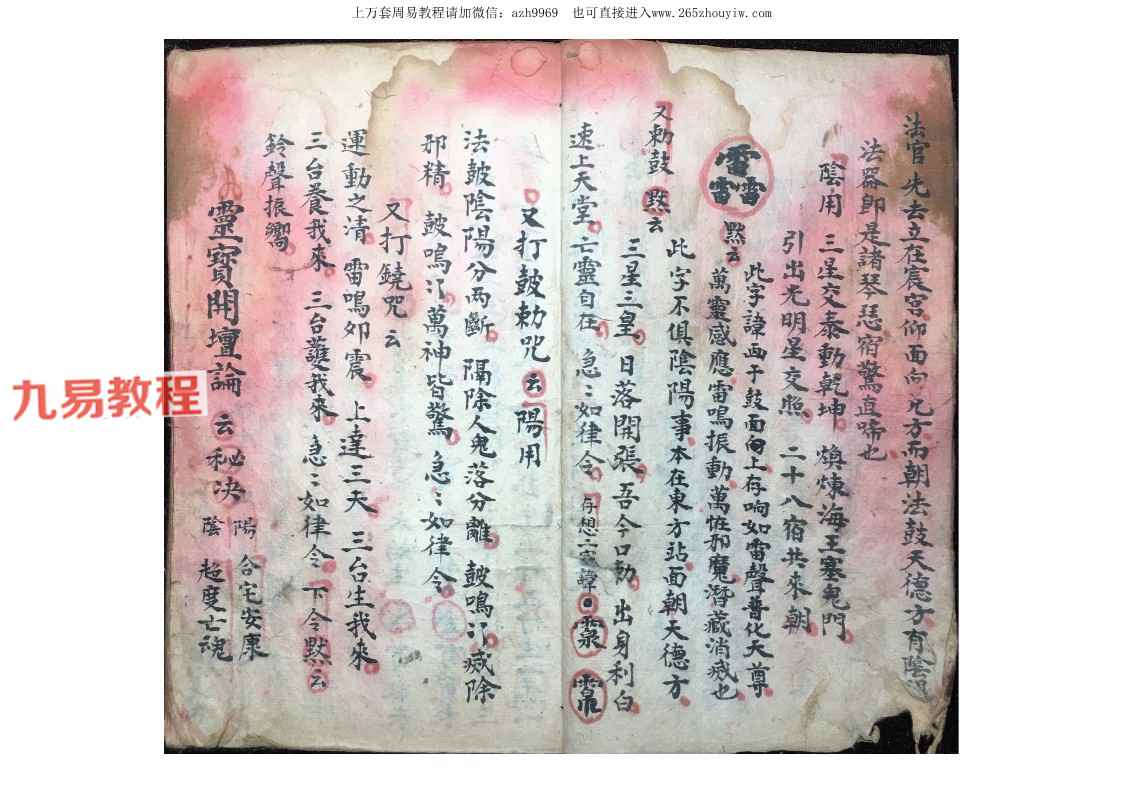 上万套周易教程请加微信：azh9969 也可直接进入www.265zhouyiw.com
法官先去立在宸宮仰面向兄方而朝法鼓天德方有陰
法器即是諸琴恐宿驚直啼也
陰用 三星交泰動乾坤 煥煉海王塞鬼門
引出光明星交照 二十八宿共來朝
雷雷雷 默云 此字諱画于鼓面向上存响如雷聲普化天尊
萬靈感應雷鳴振動萬怪邪魔潛藏消滅也
此字不俱陰陽事本在東方站面朝天德方
又勅鼓 默云 三星三皇 日落開張 吾今口勅 出身利白
速上天堂 亡靈自在 急〻如律令 存想二字諱
又打鼓勅咒云 陽用
法鼓陰陽分两斷 隔除人鬼落分離 鼓鳴〻滅除
邪精 鼓鳴〻萬神皆驚 急〻如律令
又打鐃咒云
運動之清 雷鳴如震 上達三天 三台生我來
三台養我來 三台護我來 急〻如律令 下令默云
鈴聲振嚮
靈寶開壇論 云秘决 陽 合宅安康 陰 超度亡魂
九易教程